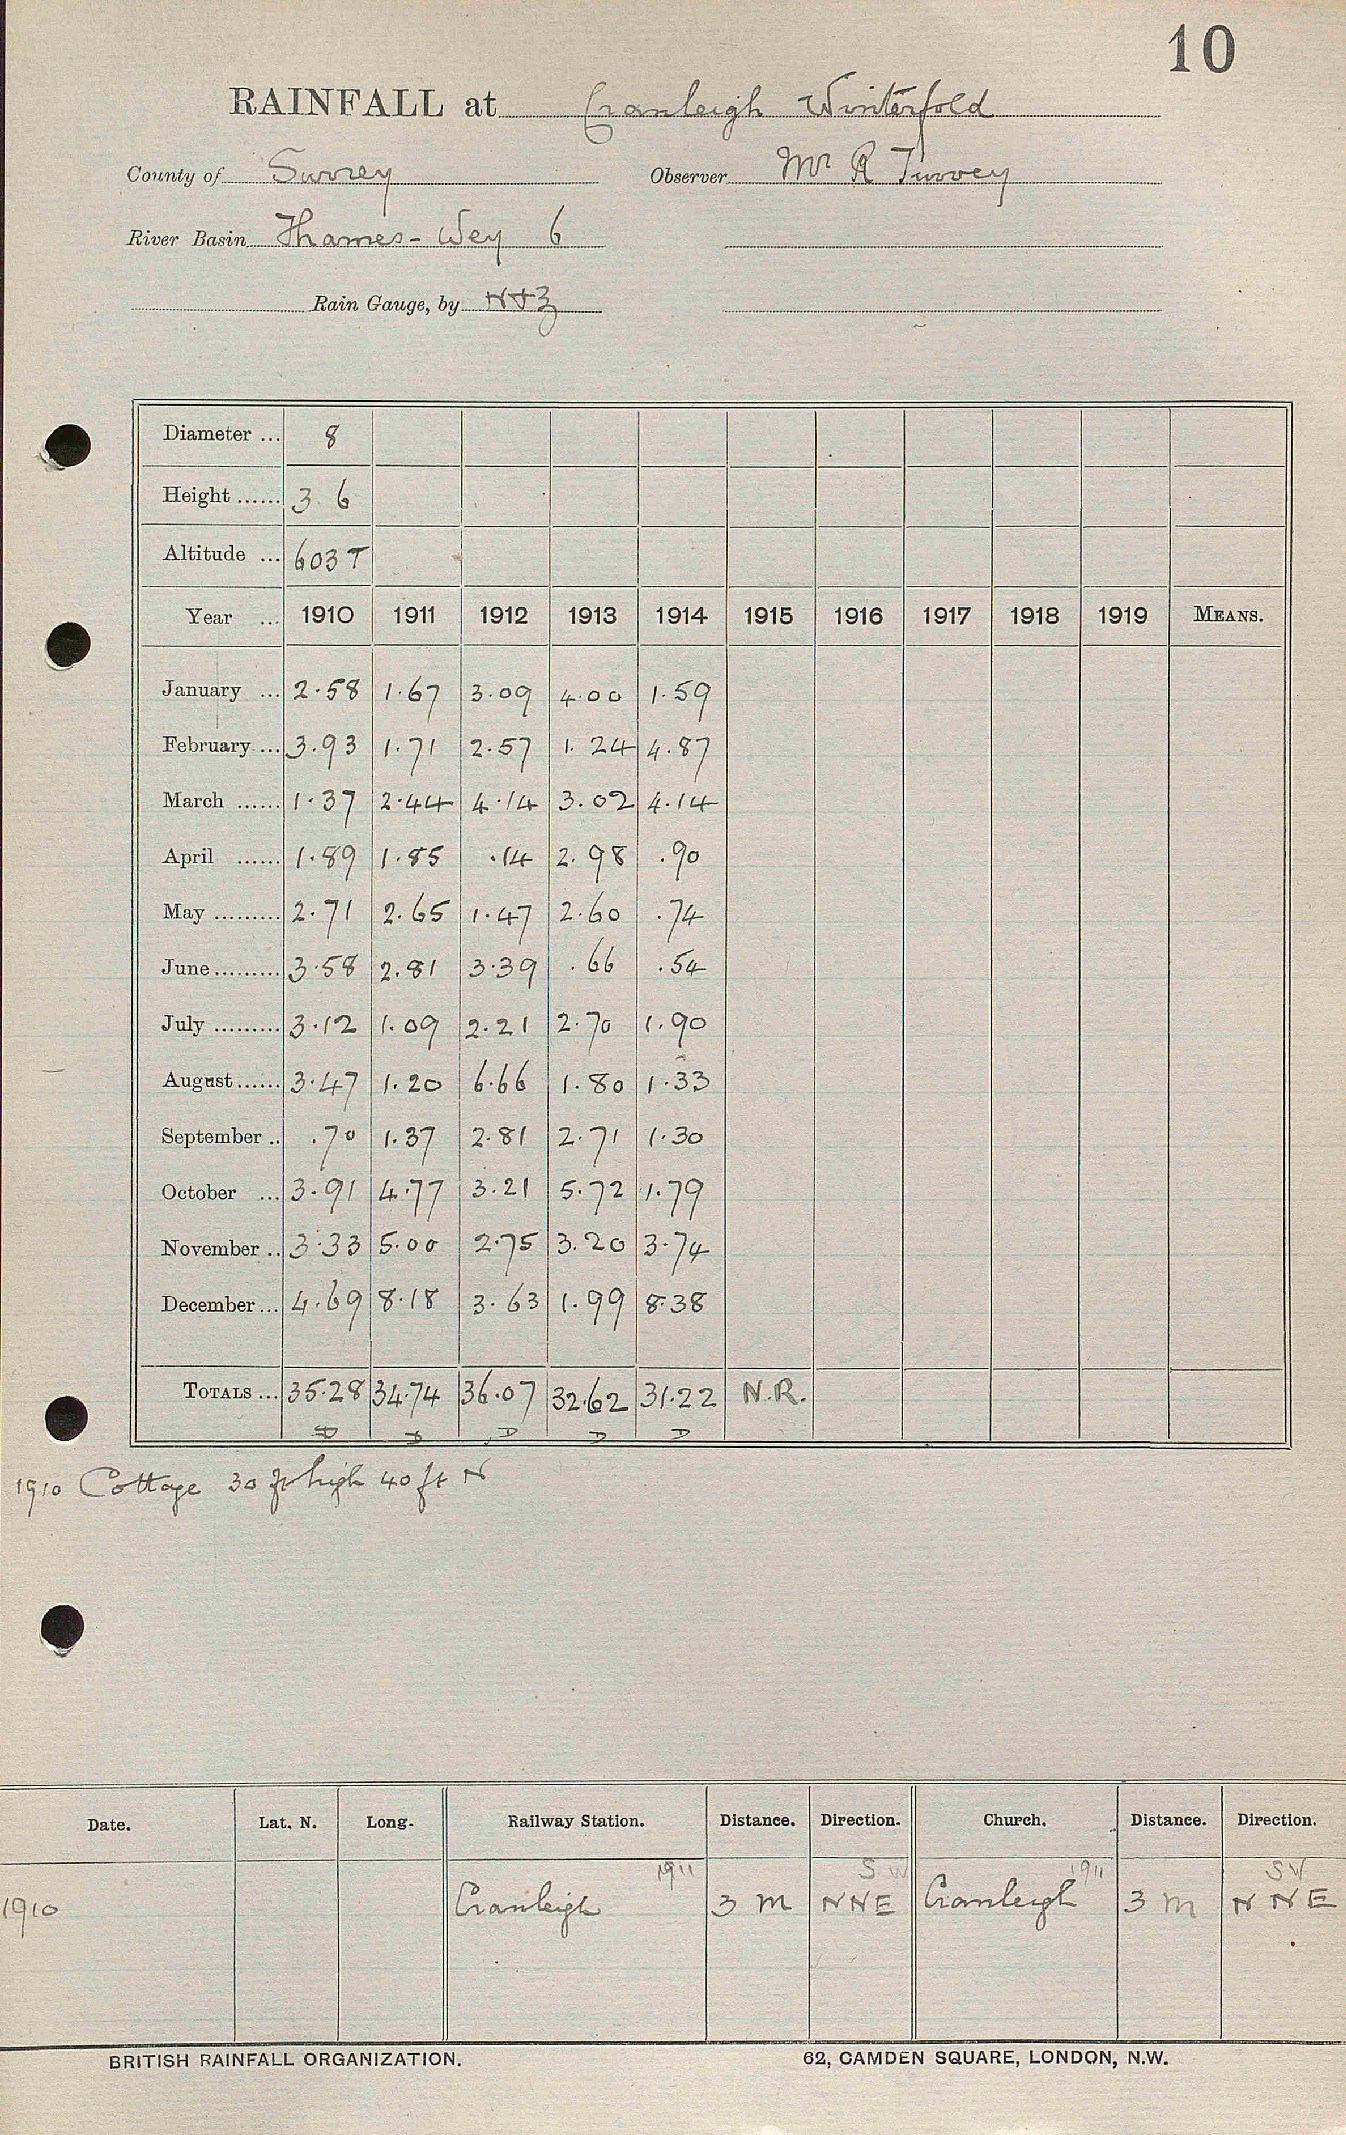 10
RAINFALL at Cranleigh Winterfold
County of Surrey Observer Mr R Turvey
River Basin Thames - Wey 6
Rain Gauge, by N+Z
Diameter ... 8
Height ...... 3 6
Altitude ... 603 T
Year ... 1910 1911 1912 1913 1914 1915 1916 1917 1918 1919 MEANS.
January ... 2.58 1.67 3.09 4.00 1.59
February ... 3.93 1.71 2.57 1.24 4.87
March ...... 1.37 2.44 4.14 3.02 4.14
April ...... 1.89 1.85 .14 2.98 .90
May ......... 2.71 2.65 1.47 2.60 .74
June ......... 3.58 2.81 3.39 .66 .54
July ......... 3.12 1.09 2.21 2.70 1.90
August ...... 3.47 1.20 6.66 1.80 1.33
September .. .70 1.37 2.81 2.71 1.30
October ... 3.91 4.77 3.21 5.72 1.79
November .. 3.33 5.00 2.75 3.20 3.74
December ... 4.69 8.18 3.63 1.99 8.38
TOTALS ... 35.28 34.74 36.07 32.62 31.22 N.R.
D D D D D
1910 Cottage 30 ft high 40 ft N
Date. Lat. N. Long. Railway Station. Distance. Direction. Church. Distance. Direction.
1911 SW 1911 SW
1910 Cranleigh 3 m NNE Cranleigh 3 m NNE
BRITISH RAINFALL ORGANIZATION. 62, CAMDEN SQUARE, LONDON, N.W.